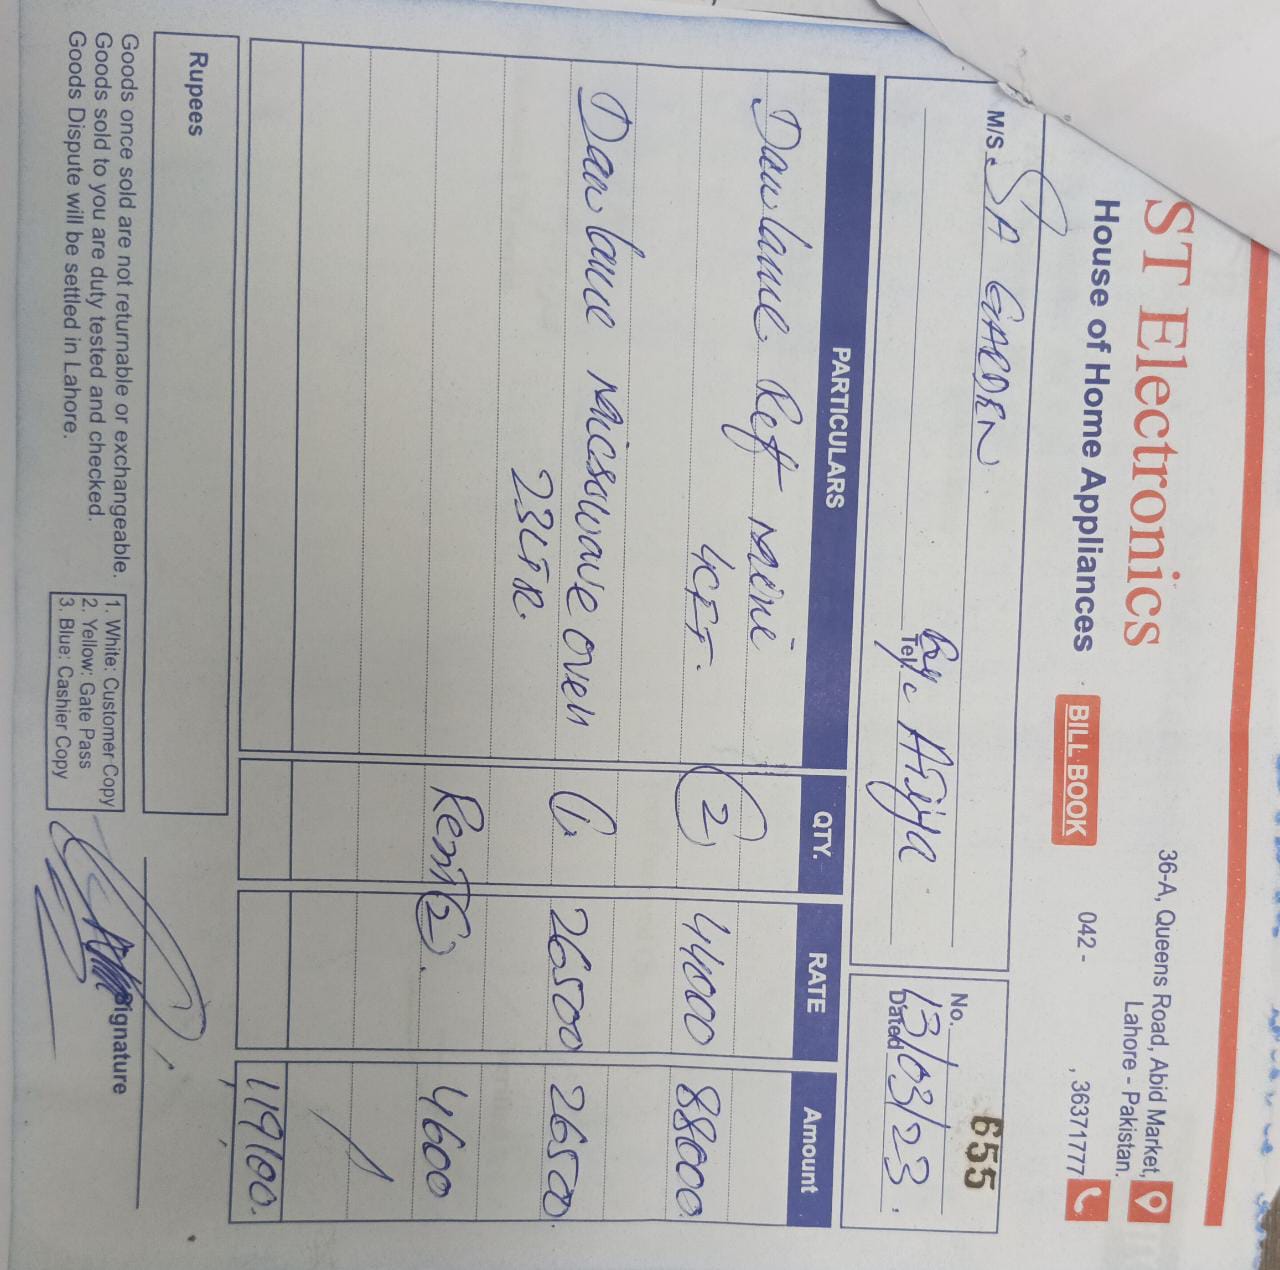 ST Electronics
House of Home Appliances
BILL BOOK
36-A, Queens Road, Abid Market,
Lahore - Pakistan.
042 - , 36371777
M/S. SA GARDEN
Tel.
No. 655
Dated 13/03/23.
PARTICULARS QTY. RATE Amount
Dawlance Ref mini
4CFT. 2 44000 88000.
Dawlance Microwave oven 1. 26500 26500.
23LTR.
Rent 2. 4600
119100.
Rupees
Goods once sold are not returnable or exchangeable.
Goods sold to you are duty tested and checked.
Goods Dispute will be settled in Lahore.
1. White: Customer Copy
2. Yellow: Gate Pass
3. Blue: Cashier Copy
Signature